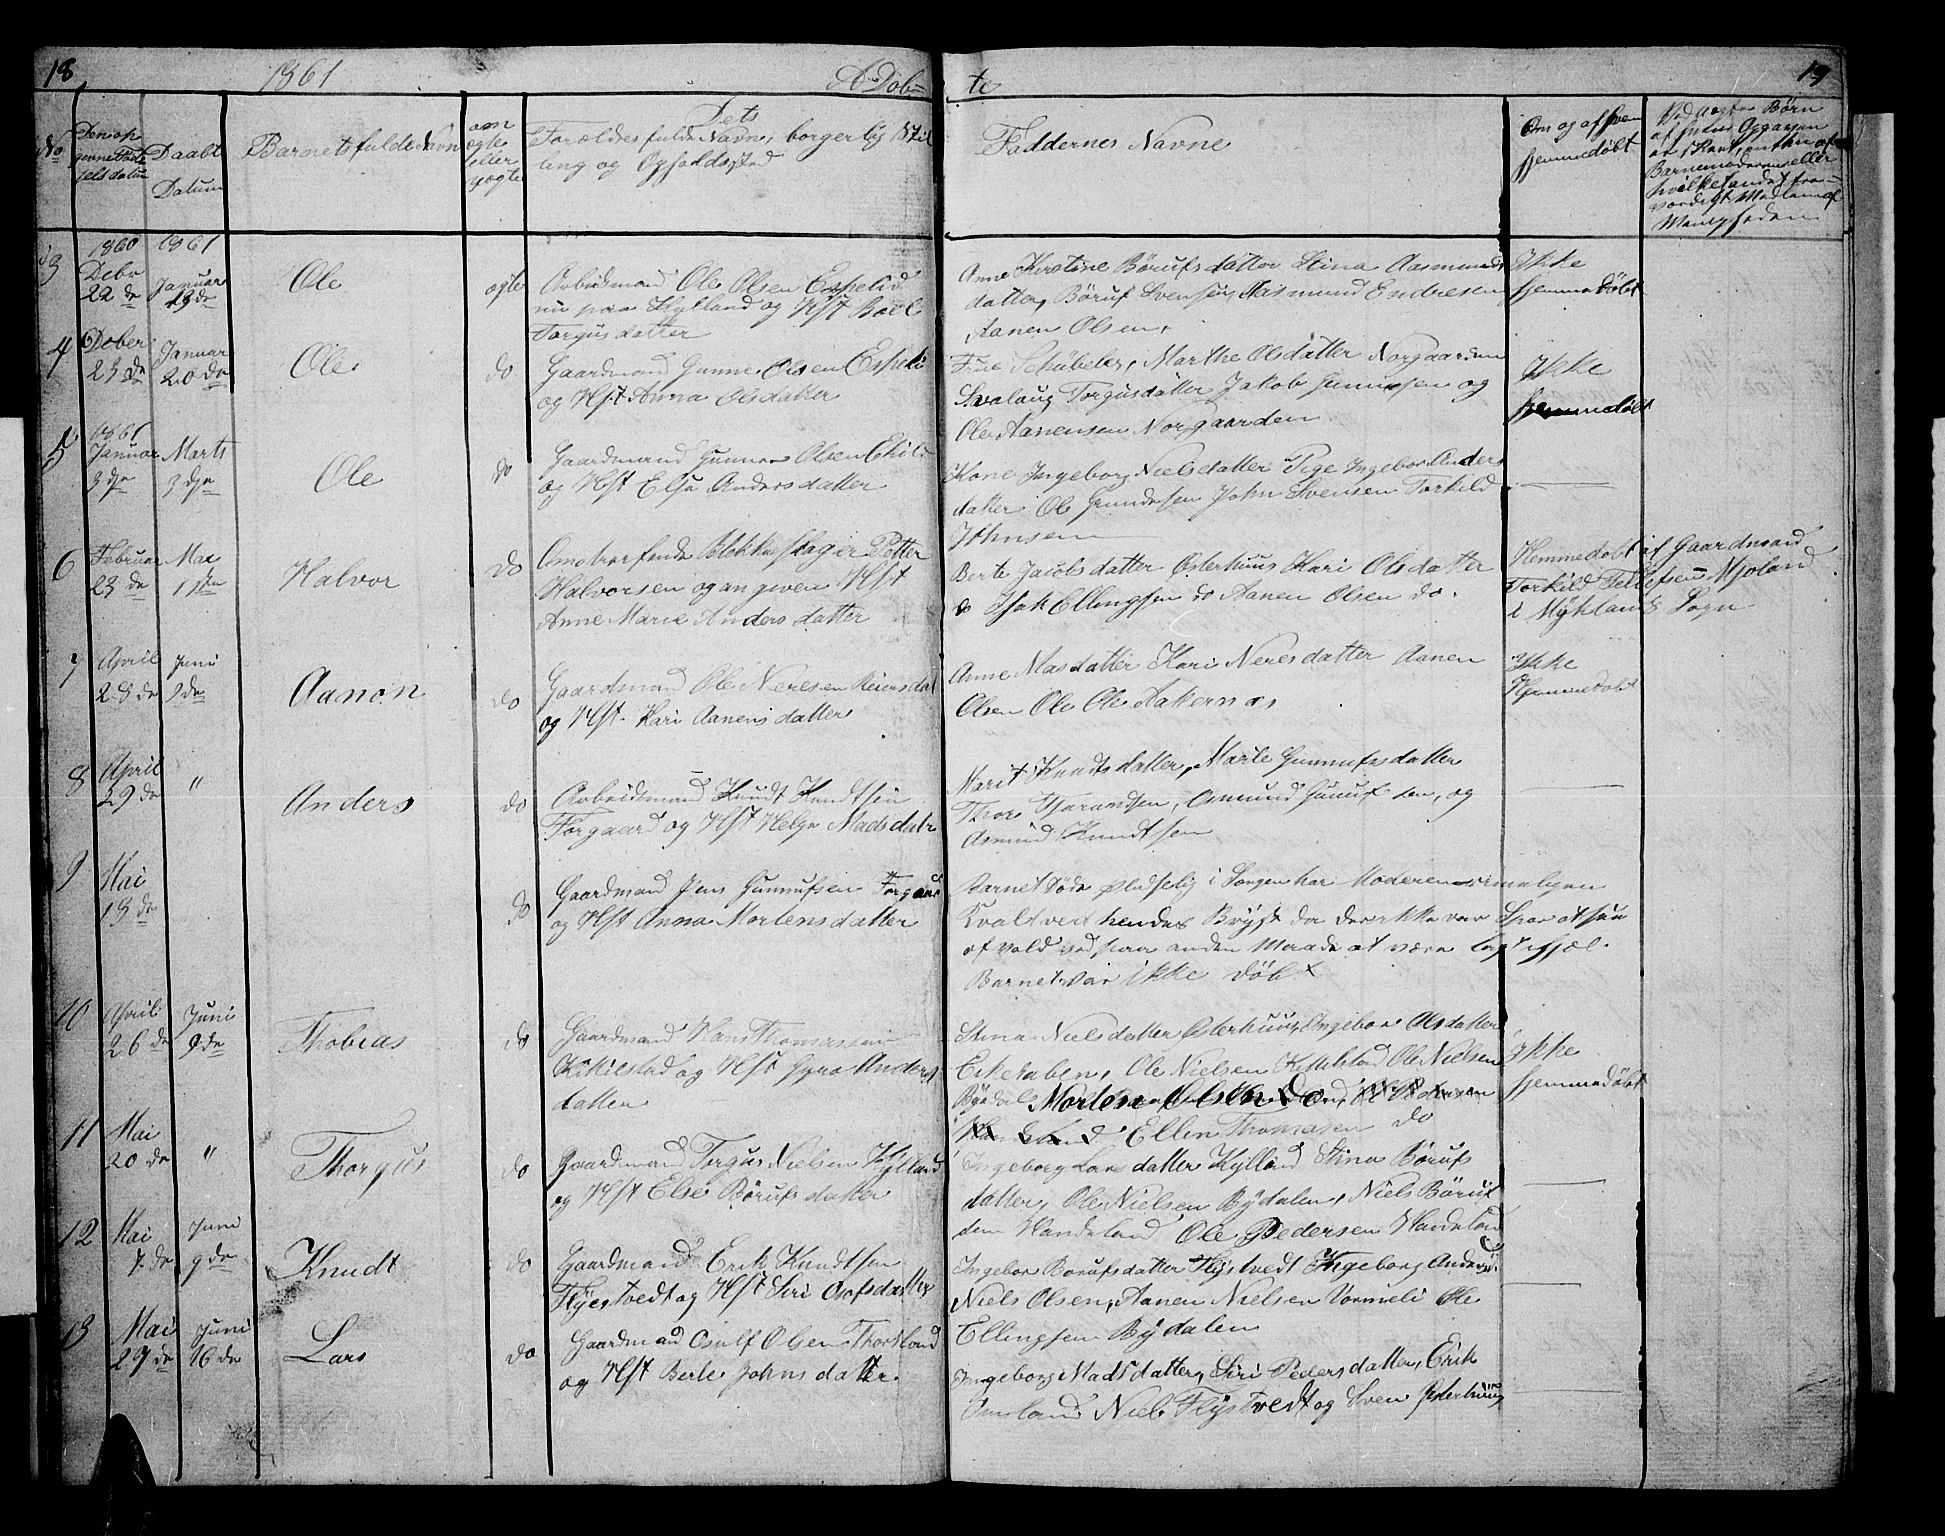 18
1861
A Døb=
te
19
No
Den op
givne Føds
sels datum
Daabs
Datum
Barnets fulde Navn
om
ægte
eller
uægte
Dets
Forældres fulde Navn, borgerlig Stil
ling og Opholdssted
Faddernes Navne
Om og af hvem
hjemmedøbt
3
1860
Debr
22 de
1861
Januar
13 de
Ole
ægte
Arbeidsmand Ole Olsen Espelid
nu paa Hylland og Hst Boel
Torgusdatter
Anne Kirstine Børufsdatter Stina Aasmunds
datter, Børuf Svensen, Aasmund Endresen
Aanen Olsen,
Ikke
hjemmedøbt
4
Dober
23 de
Januar
20 de
Ole
do
Gaardmand Gunne Olsen Espeli
og Hst Anna Olsdatter
Frue Schübeler, Marthe Olsdatter Norgaarden
Svalaug Torgusdatter Jakob Gunnesen og
Ole Aanensen Norgaarden
Ikke
hjemmedøbt
5
1861
Januar
3 dje
Marts
3 dje
Ole
do
Gaardmand Gunnar Olsen
og Hst Else Andersdatter
Kone Ingeborg Nielsdatter Pige Ingebor Anders
datter Ole Gundersen John Svensen Torkild
Johnsen
6
Februar
23 de
Mai
1 ste
Halvor
do
Omstreifende Blikkenslager Petter
Halvorsen og angiven Hst
Anne Marie Andersdatter
Berte Jacobsdatter Østerhuus Kari Olsdatter
do Isak Ellingsen do Aanen Olsen do.
Hemmedøbt af Gaardmand
Torkild Tellefsen Mjoland
i Myklands Sogn
7
April
28 de
Juni
9 de
Aanon
do
Gaardmand Ole Neresen Reiersdal
og Hst. Kari Aanensdatter
Anne Masdatter Kari Neresdatter Aanen
Olsen Ole Ole Aakernæs
Ikke
Hjemmedøbt
8
April
29 de
"
Anders
do
Arbeidsmand Knudt Knudtsen
Forgaard og Hst Helge Madsdatr
Marit Knudtsdatter, Marte Gunnufsdatter
Thor Tjerandsen, Osmund Gunufsen, og
Asmund Knudtsen
9
Mai
13 de
do
Gaardmand Jens Gunnufsen Forgaar
og Hst Anna Mortensdatter
Barnet døde pludselig i Sengen har Moderen rimeligen
Kvalt ved hendes Bryst da der ikke var Spor at see
af vold ved paa anden Maade at være lagt ihjæl.
Barnet var ikke døbt
10
April
26 de
Juni
9 de
Thobias
do
Gaardmand Hans Thomassen
Kikilstad og Hst Gyro Anders
datter
Stina Nielsdatter Østerhuus, Ingebor Olsdatter
Eiketaben, Ole Nielsen Kikilstad Ole Nielsen
Bydal Morten Olsen Do
Ellen Thomasen do
Ikke
hjemmedøbt
11
Mai
20 de
"
Thorgus
do
Gaardmand Torgus Nielsen Hylland
og Hst Else Børufsdatter
Ingeborg Larsdatter Kylland Stina Børufs
datter, Ole Nielsen Bydalen, Niels Børuf
sen Handeland Ole Pedersen Handeland
12
Mai
7. de
Juni
9 de
Knudt
do
Gaardmand Erik Knudtsen
Flystvedt og Hst Siri Olofsdatter
Ingebor Borufsdatter Flystvedt Ingeborg Andersd.
Niels Olsen, Aanen Nielsen Vormeli Ole
Ellingsen Bydalen
13
Mai
27 de
Juni
16 de
Lars
do
Gaardmand Osulf Olsen Thorsland
og Hst Berte Johnsdatter
Ingeborg Madsdatter, Siri Pedersdatter, Erik
Omland Niels Flystvedt og Sven Østerhuus